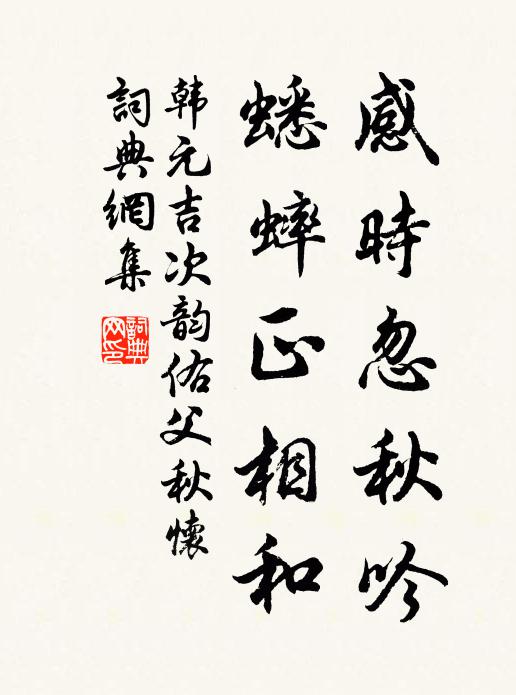 感時忽秋吟
蟋蟀正相和
韩元吉次韵佑父秋懷
詞典網集
詞典网印